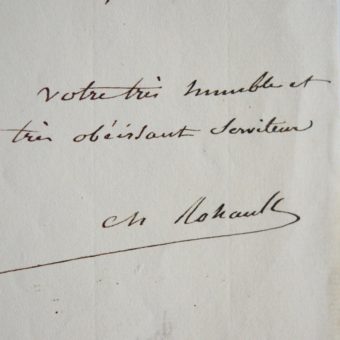 votre très humble et
très obéissant serviteur
Ch Rohault